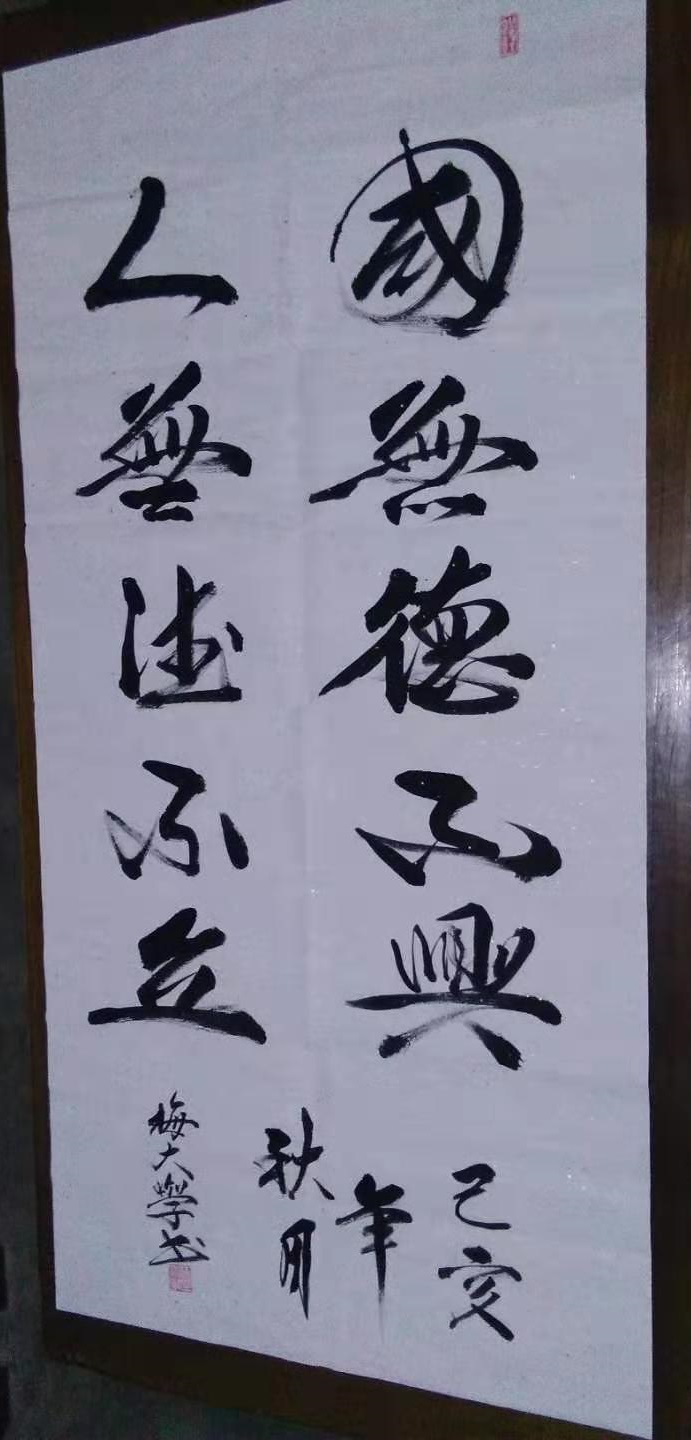 國無德不興
人無德不立
己亥
年
秋月
梅大學书